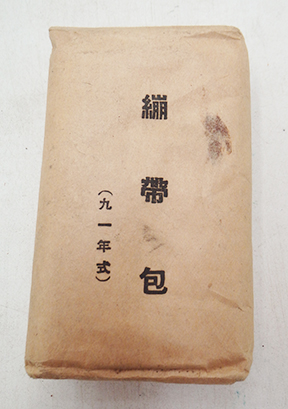 繃帶包
(九一年式)